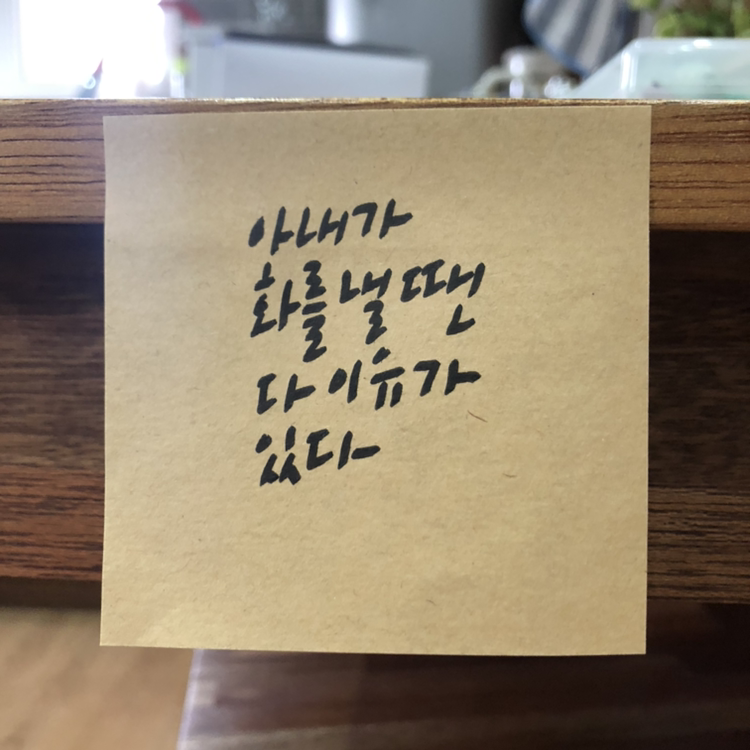 아내가
화를 낼 땐
다 이유가
있다